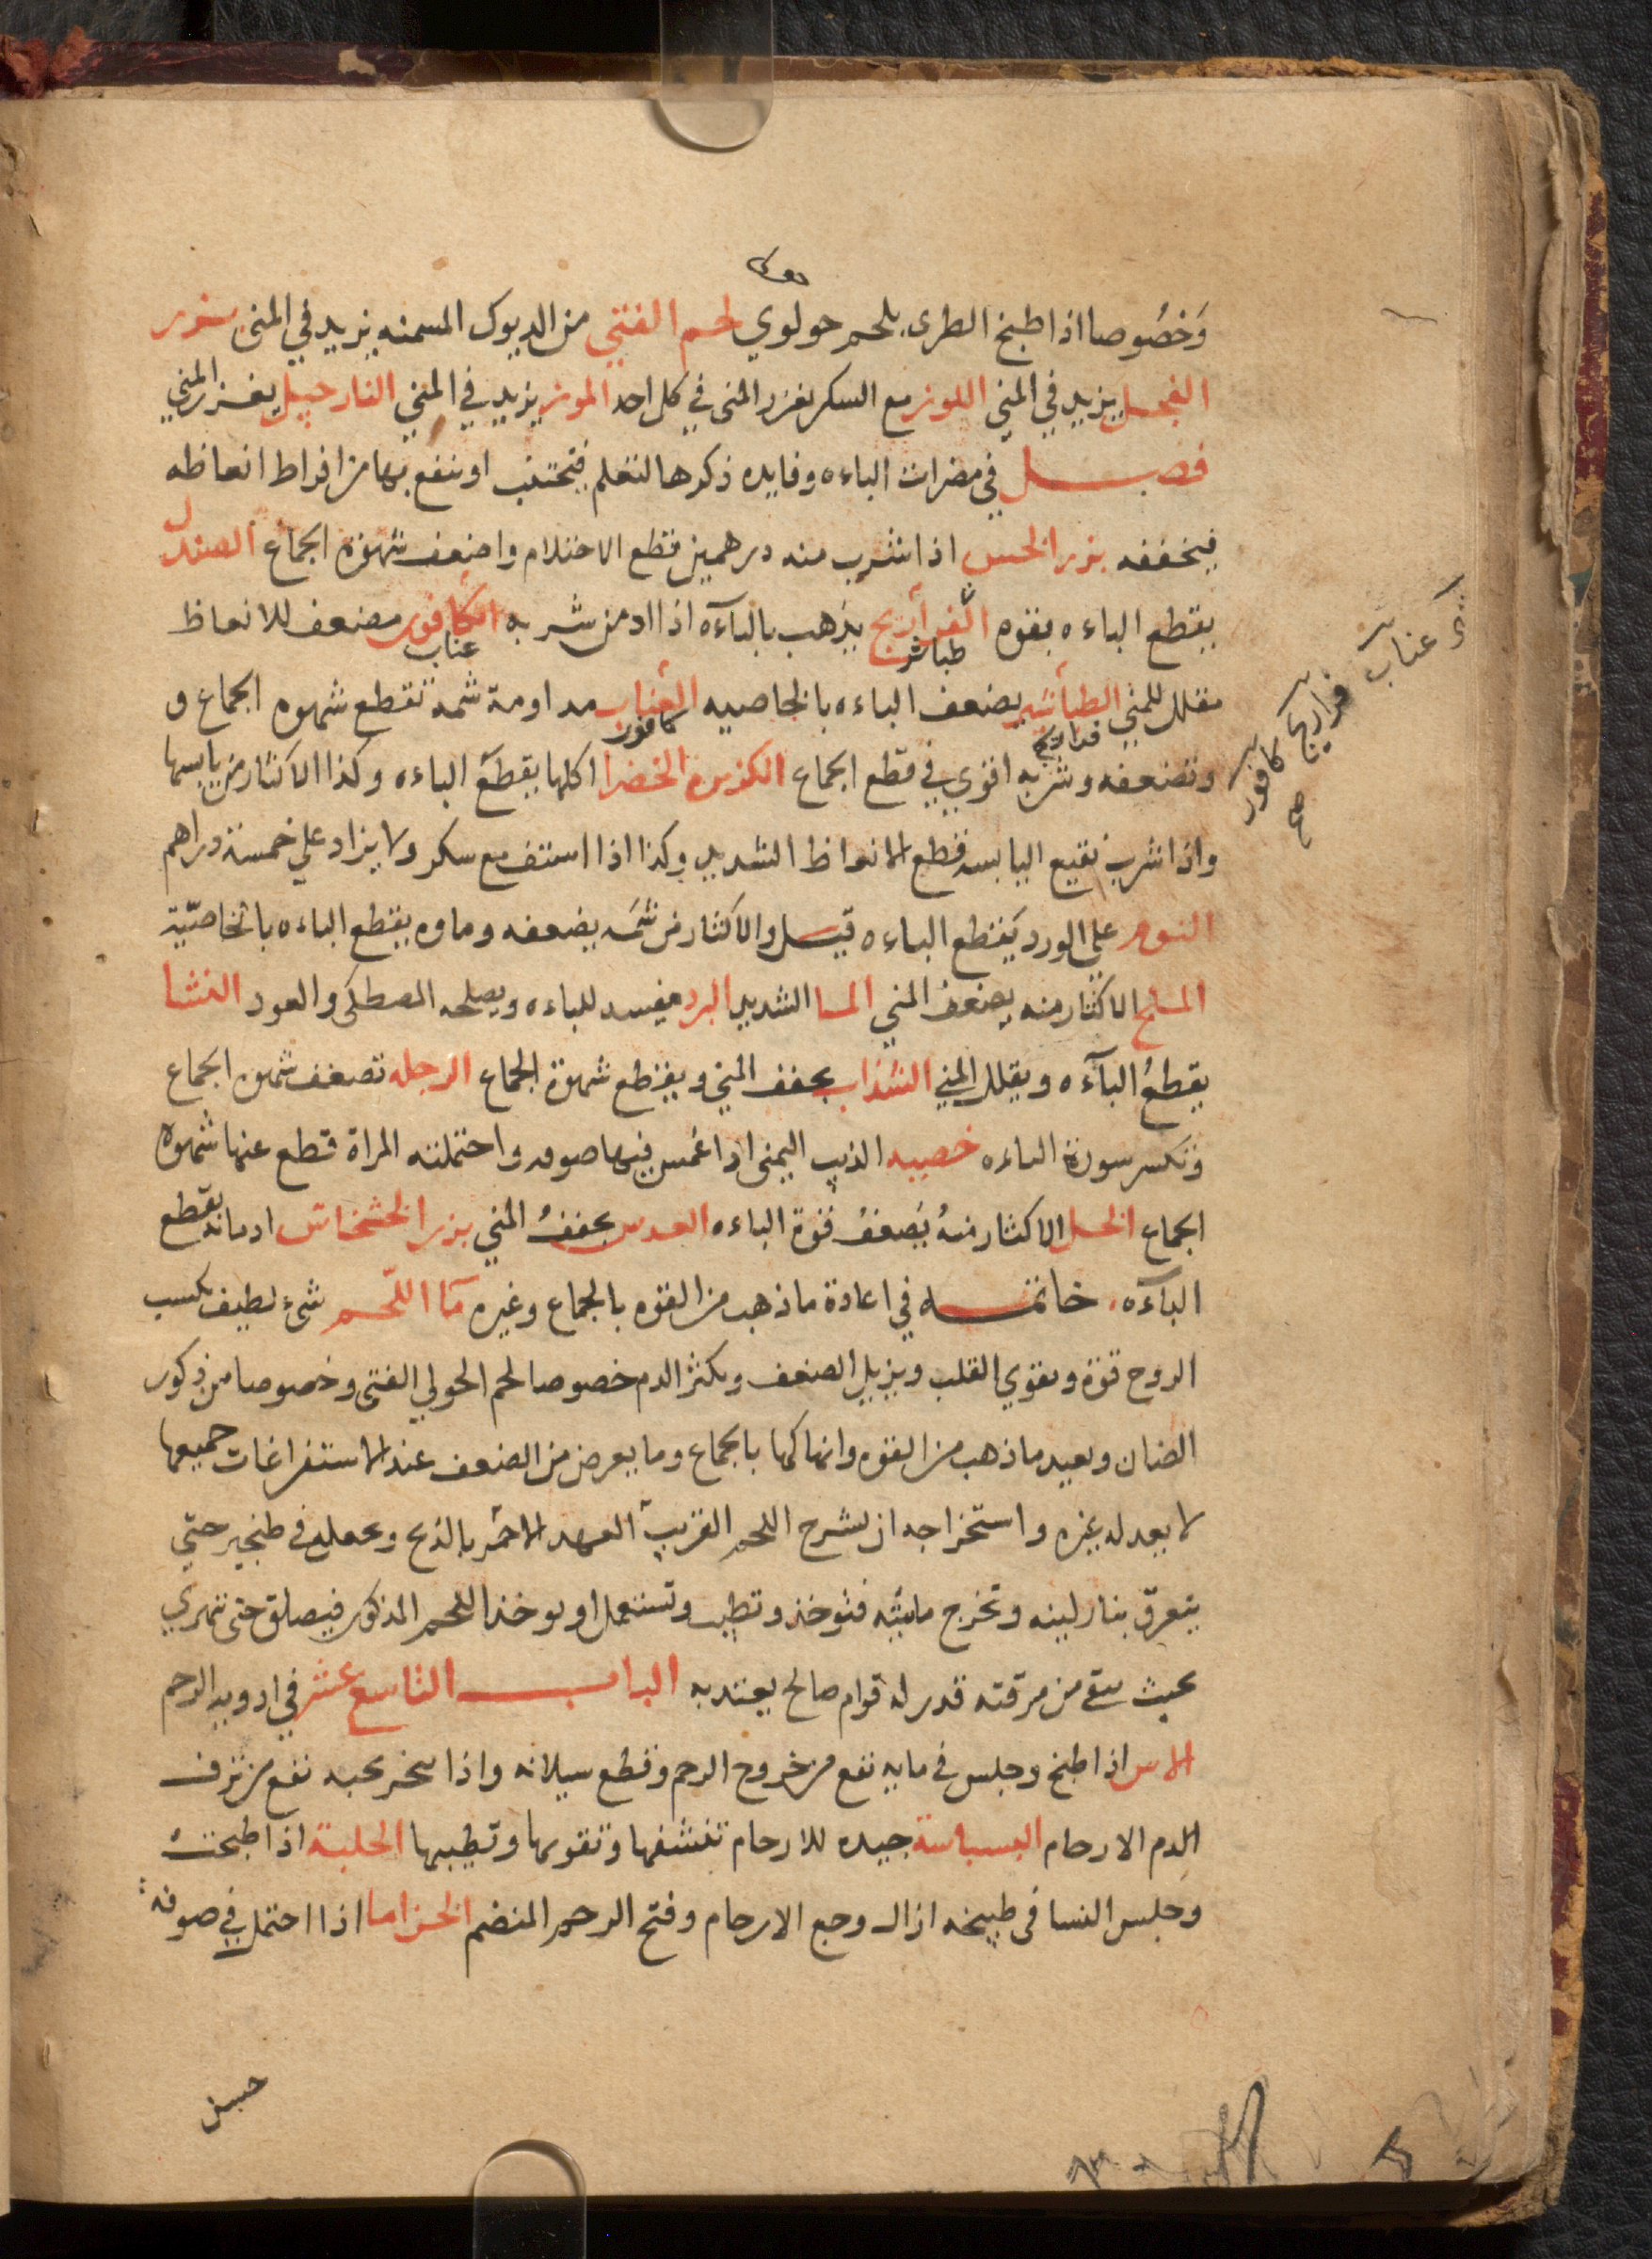 وَخصُوصا اذا طبخ الطرى بلحم حولوي لحم الفتي من الديوك المسمنه يزيد في المنى بزر
الفجل يزيد في المني اللوز مع السكر يغزر المنى في كل احد الموز يزيد في المني النارجيل يغزر المني
فصل في مضرات الباءه وفايده ذكرها لتعلم فتجتنب او ينفع بها من افراط انعاظه
فيخففه بزر الخس اذا شرب منه درهمين قطع الاحتلام واضعف شهوة الجماع الصندل
يقطع الباءه بقوه الفراريج يذهب بالباءه اذا ادمن شربه الكافور مضعف للانعاظ
طباشير
عناب
مقلل للمني الطباشير يضعف الباءه بالخاصيه العناب مداومة شمه تقطع شهوه الجماع و
فراريج
كافور
وتضعفه وشربه اقوي في قطع الجماع الكزبره الخضرا اكلها يقطع الباءه وكذا الاكثار من يابسها
واذا شرب نقيع اليابسه قطع الانعاظ الشديد وكذا اذا استف مع سكر ولا يزاد علي خمسة دراهم
النوم على الورد يَقطع الباءه قيل والاكثار من شمه يضعفه وماوه يقطع الباءه بالخاصيّة
الملح الاكثار منه يضعف المني الما الشديد البرد مفسد للباءه ويصلحه المصطكى والعود النشا
يقطعُ البآءه ويقلل المني السذاب يجفف المني ويقطع شهوة الجماع الرجله تضعف شهوه الجماع
وتكسر سورة الباءه خصيه الذيب اليمنى اذا غمس فيها صوفه واحتملته المراة قطع عنها شهوه
الجماع الخل الاكثار منهُ يُضعفُ قوة الباءه العدس يجففُ المني بزر الخشخاش ادمانه يقطع
البآءه خاتمه في اعادة ما ذهب من القوه بالجماع وغيره مآ اللّحم شىء لطيف يكسب
الروح قوة ويقوي القلب ويزيل الضعف ويكثر الدم خصوصا لحم الحولي الفتى وخصوصا من ذكور
الضان ويعيد ما ذهب من القوه وانهاكها بالجماع وما يعرض من الضعف عند الاستفراغات جميعها
لا يعدله غيره واستخراجه ان يشرح اللحم القريب العهد الاحمر بالذبح ويجعل في طنجير حتي
يتعرق بنار لينه وتخرج مائيته فتوخذ وتطيب وتستعمل او يوخذ اللحم المذكور فيصلق حتى تتهري
بحيث يبقي من مرقته قدر له قوام صالح يعتد به الباب التاسع عشر في ادويه الرحم
الاس اذا طبخ وجلس في مايه نفع من خروج الرحم وقطع سيلانه واذا بخر بحبه نفع من نزف
الدم الارحام البسباسة جيده للارحام تنشفها وتقويها وتطيبها الحلبة اذا طبخت
وجلس النسا في طبيخه ازال وجع الارحام وفتح الرحم المنضم الخزاما اذا احتمل في صوفه
عناب
فراريج
كافور
صح